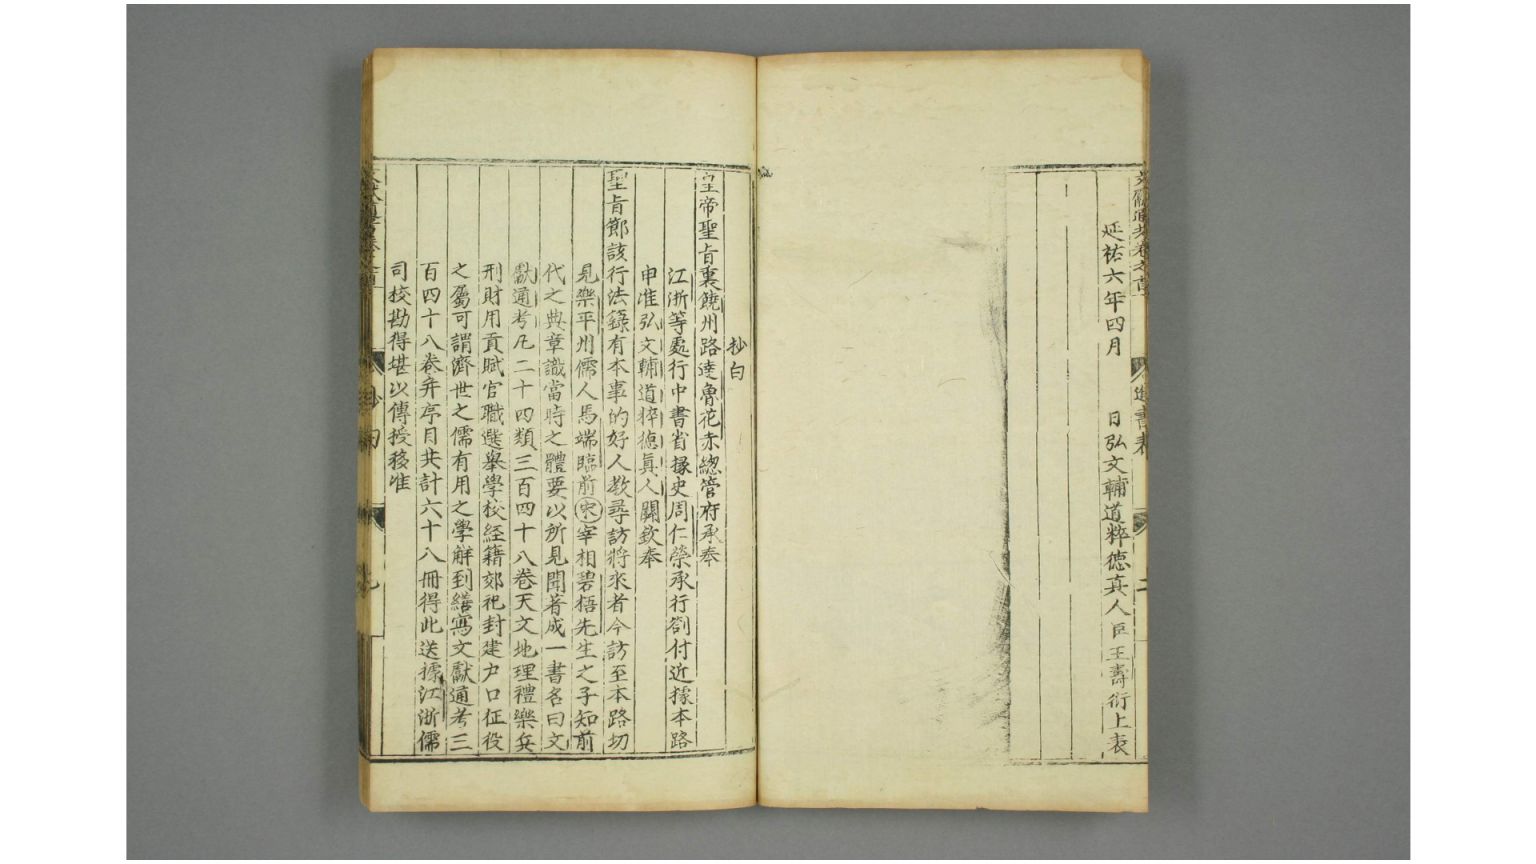 文獻通考卷之首
進書表
二
延祐六年四月 日弘文輔道粹德真人臣王壽衍上表
抄白
皇帝聖旨裏饒州路達魯花赤緫管府承奉
江浙等處行中書省掾史周仁榮承行劄付近據本路
申准弘文輔道粹德眞人關欽奉
聖旨節該行法籙有本事的好人教尋訪將來者今訪至本路切
見樂平州儒人馬端臨前宋宰相碧梧先生之子知前
代之典章識當時之體要以所見聞著成一書名曰文
獻通考凡二十四類三百四十八卷天文地理禮樂兵
刑財用貢賦官職選舉學校経籍郊祀封建户口征役
之屬可謂濟世之儒有用之學觧到繕寫文獻通考三
百四十八卷并序目共計六十八冊得此送據江浙儒
司校勘得堪以傳授移准
抄白
九